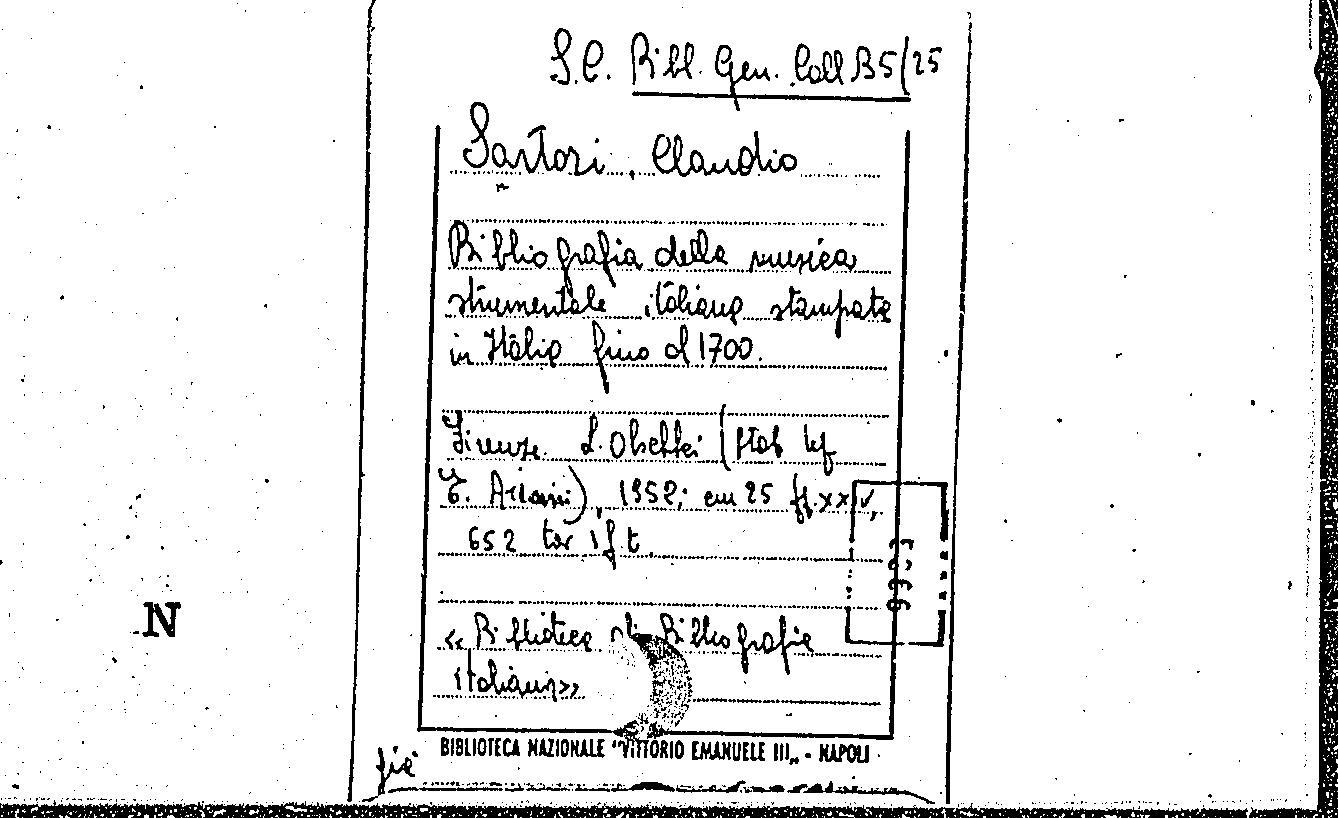 S.C. Bibl. Gen. Coll B5/25
Sartori, Claudio
Bibliografia della musica
strumentale italiana stampata
in Italia fino al 1700.
Firenze L. Olschki (Stab tip
E. Ariani), 1952; cm 25 ff. xxiv,
652 tav 1 f t.
« Biblioteca di Bibliografia
Italiana »
BIBLIOTECA NAZIONALE "VITTORIO EMANUELE III„ - NAPOLI
N